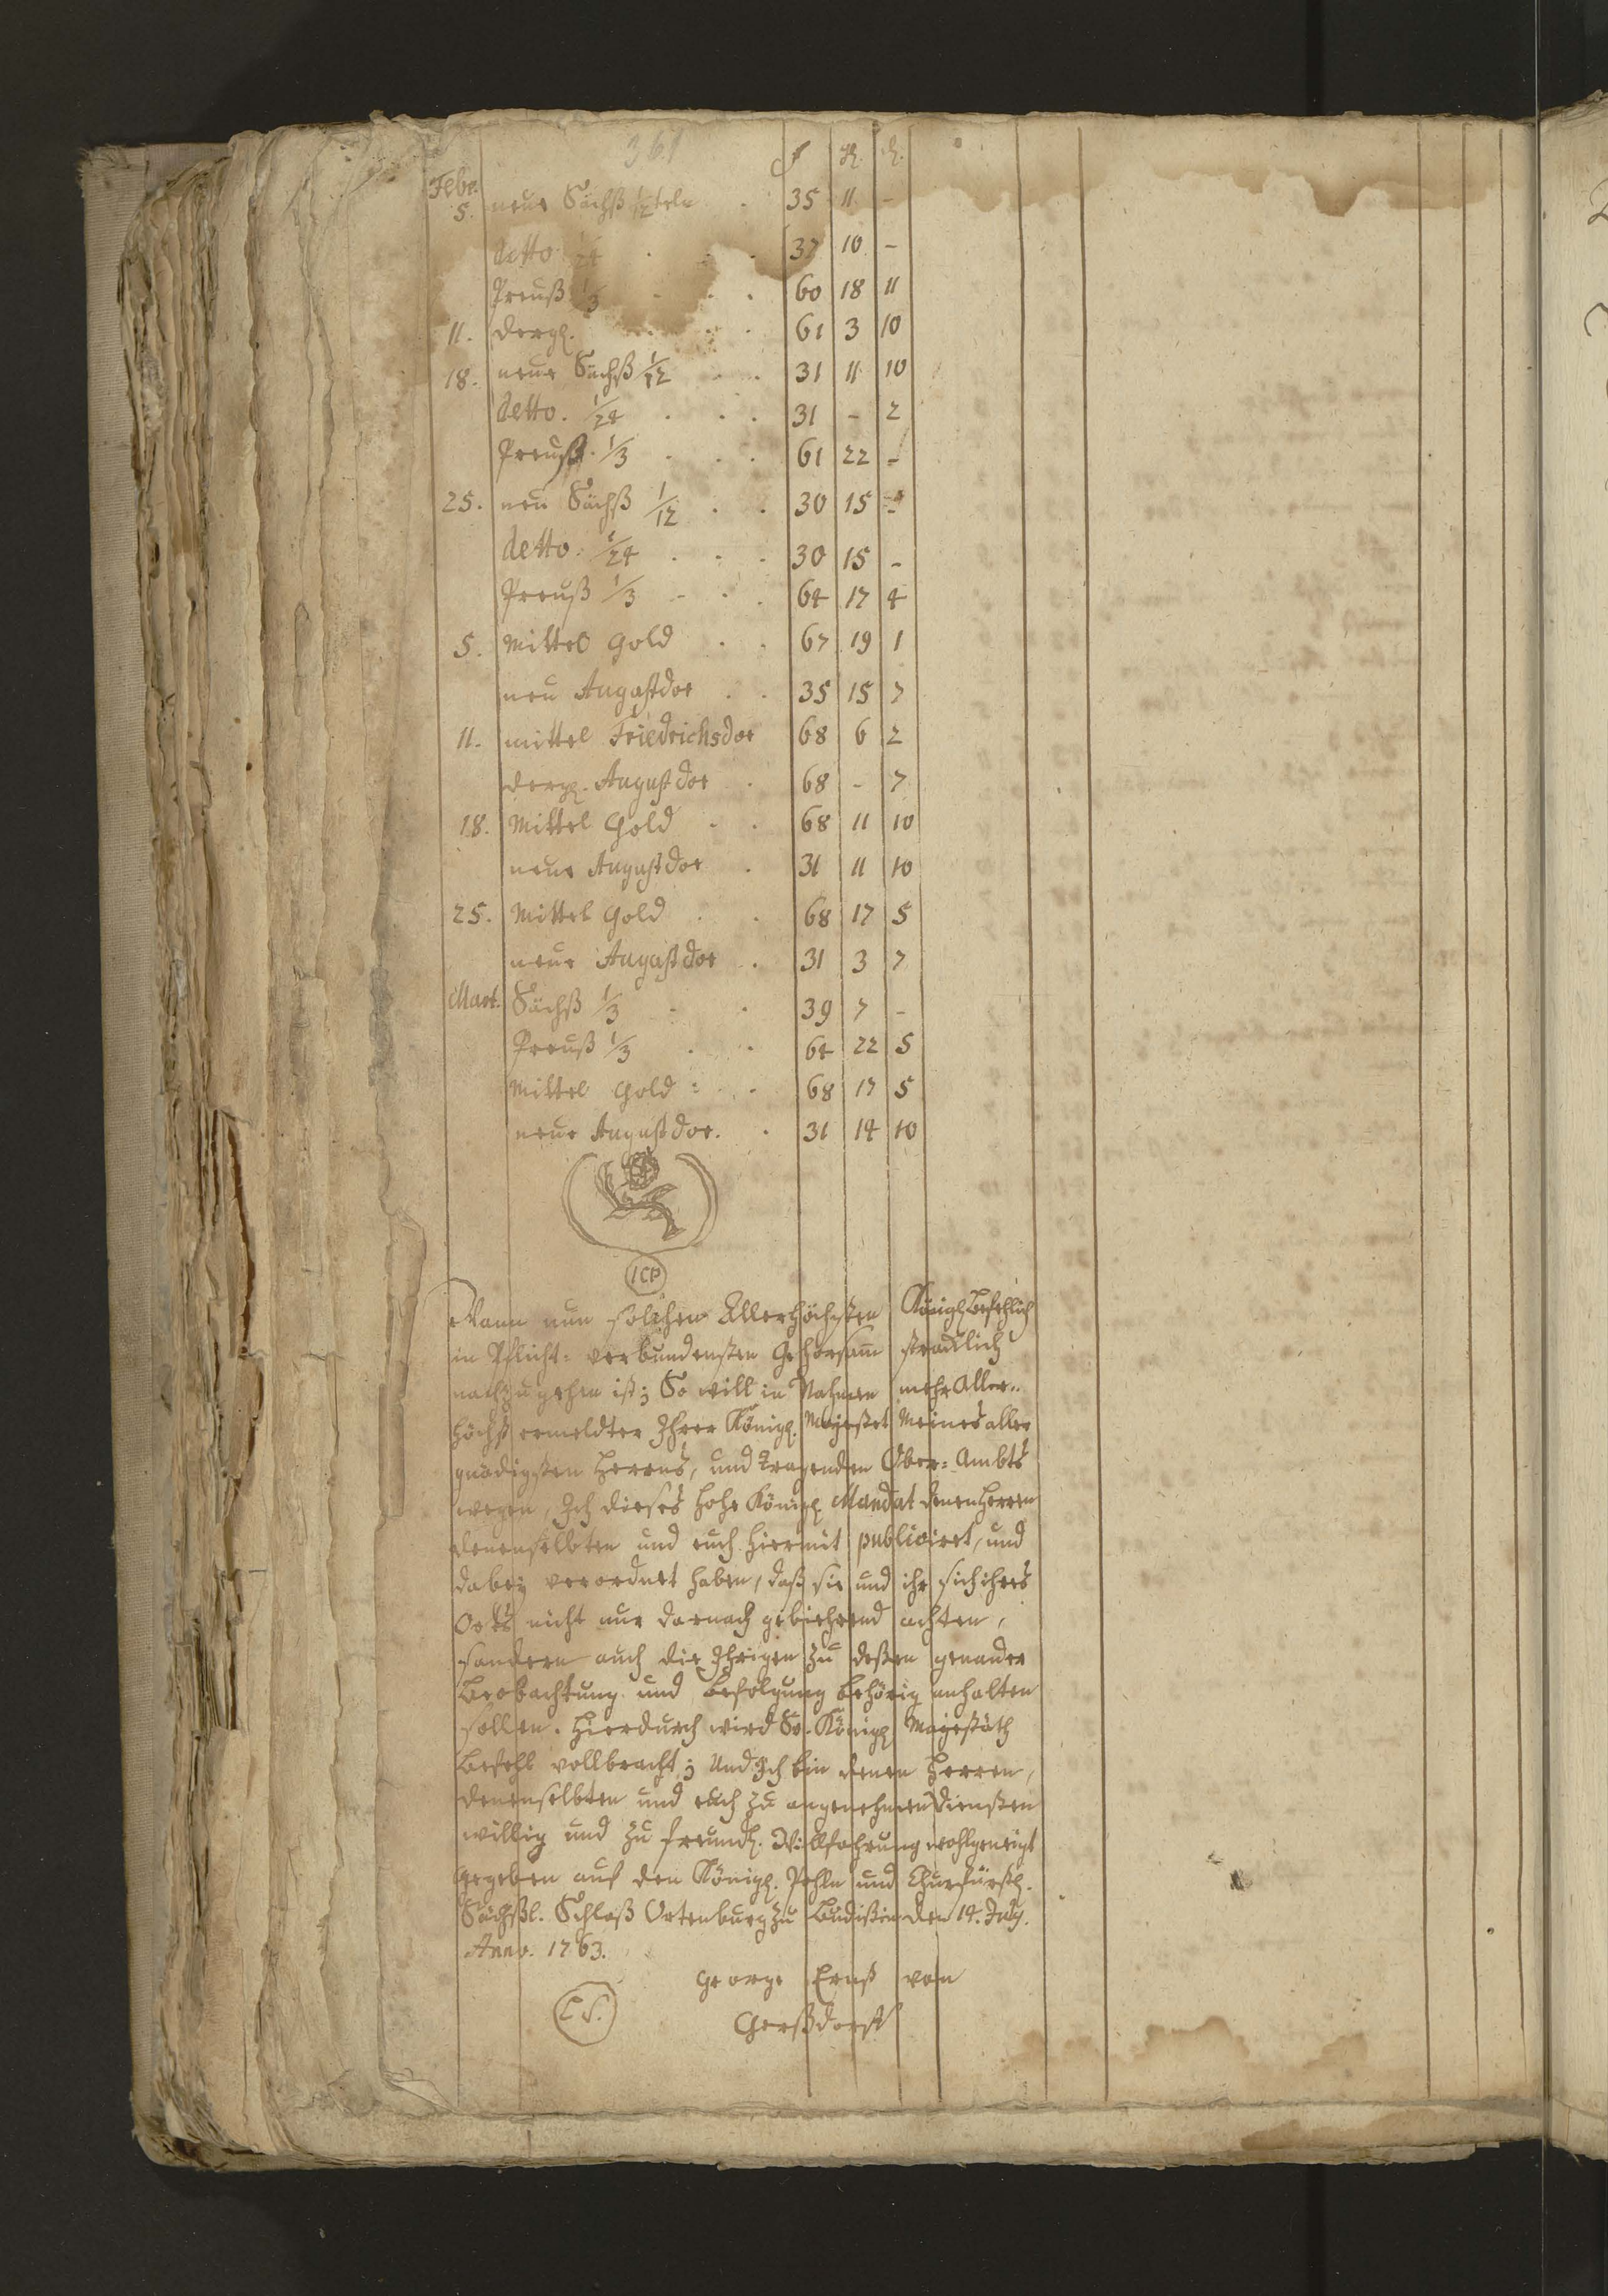 361
f. K. d.
Febr. 5. neue Sächß 1/12 teln . 35 11 -
detto 1/24 . . . 37 10 -
Preuß 1/3 . . . 60 18 11
11. dergl. . . . 61 3 10
18. neue Sächß 1/12 . . 31 11 10
detto. 1/24 . . . 31 - 2
Preuß. 1/3 . . . 61 22 -
25. neu Sächß 1/12 . . 30 15 -
detto. 1/24 . . . 30 15 -
Preuß 1/3 - . . 64 17 4
5. Mittel Gold . . 67 19 1
neu Augustdor . . 35 15 7
11. mittel Friedrichsdor 68 6 2
dergl. Augustdor . 68 - 7
18. Mittel Gold . . 68 11 10
neue Augustdor . 31 11 10
25. Mittel Gold . . 68 17 5
neue Augustdor . 31 3 7
Mart. Sächß 1/3 - . 39 7 -
Preuß 1/3 . . 64 22 5
Mittel Gold . . 68 17 5
neue Augustdor. . 31 14 10
ICP
Wann nun solchen Allerhöchsten Königl Befehlich
in Pflicht= verbundensten Gehorsam̅ stracklich
nachzugehen ist; So will in Nahmen mehr Aller=
höchst ermeldter Ihrer Königl. Majestet Meines aller
gnädigsten Herrns, und tragenden Ober=Ambts
wegen, Ich dieses hohe Königl Mandat denen Herren
denenselbten und euch hiermit publiciret, und
dabey verordnet haben, daß sie und ihr sich ihres
Orts nicht nur darnach gebiehrend achten,
sondern auch die Ihrigen zu deßen genauer
Beobachtung und Befolgung behörig anhalten
sollen. Hierdurch wird Sr. Königl Majestäth
Befehl vollbracht; Und Ich bin denen Herren,
denenselbten und euch zu angenehmen Diensten
willig und zu freundl. Willfahrung wohlgeneigt
Gegeben auf den Königl. Pohln und Churfürstl.
Sächßl. Schloß Ortenburg zu Budißin den 14. July.
Anno. 1763.
George Ernst von
L.S. Gerßdorff